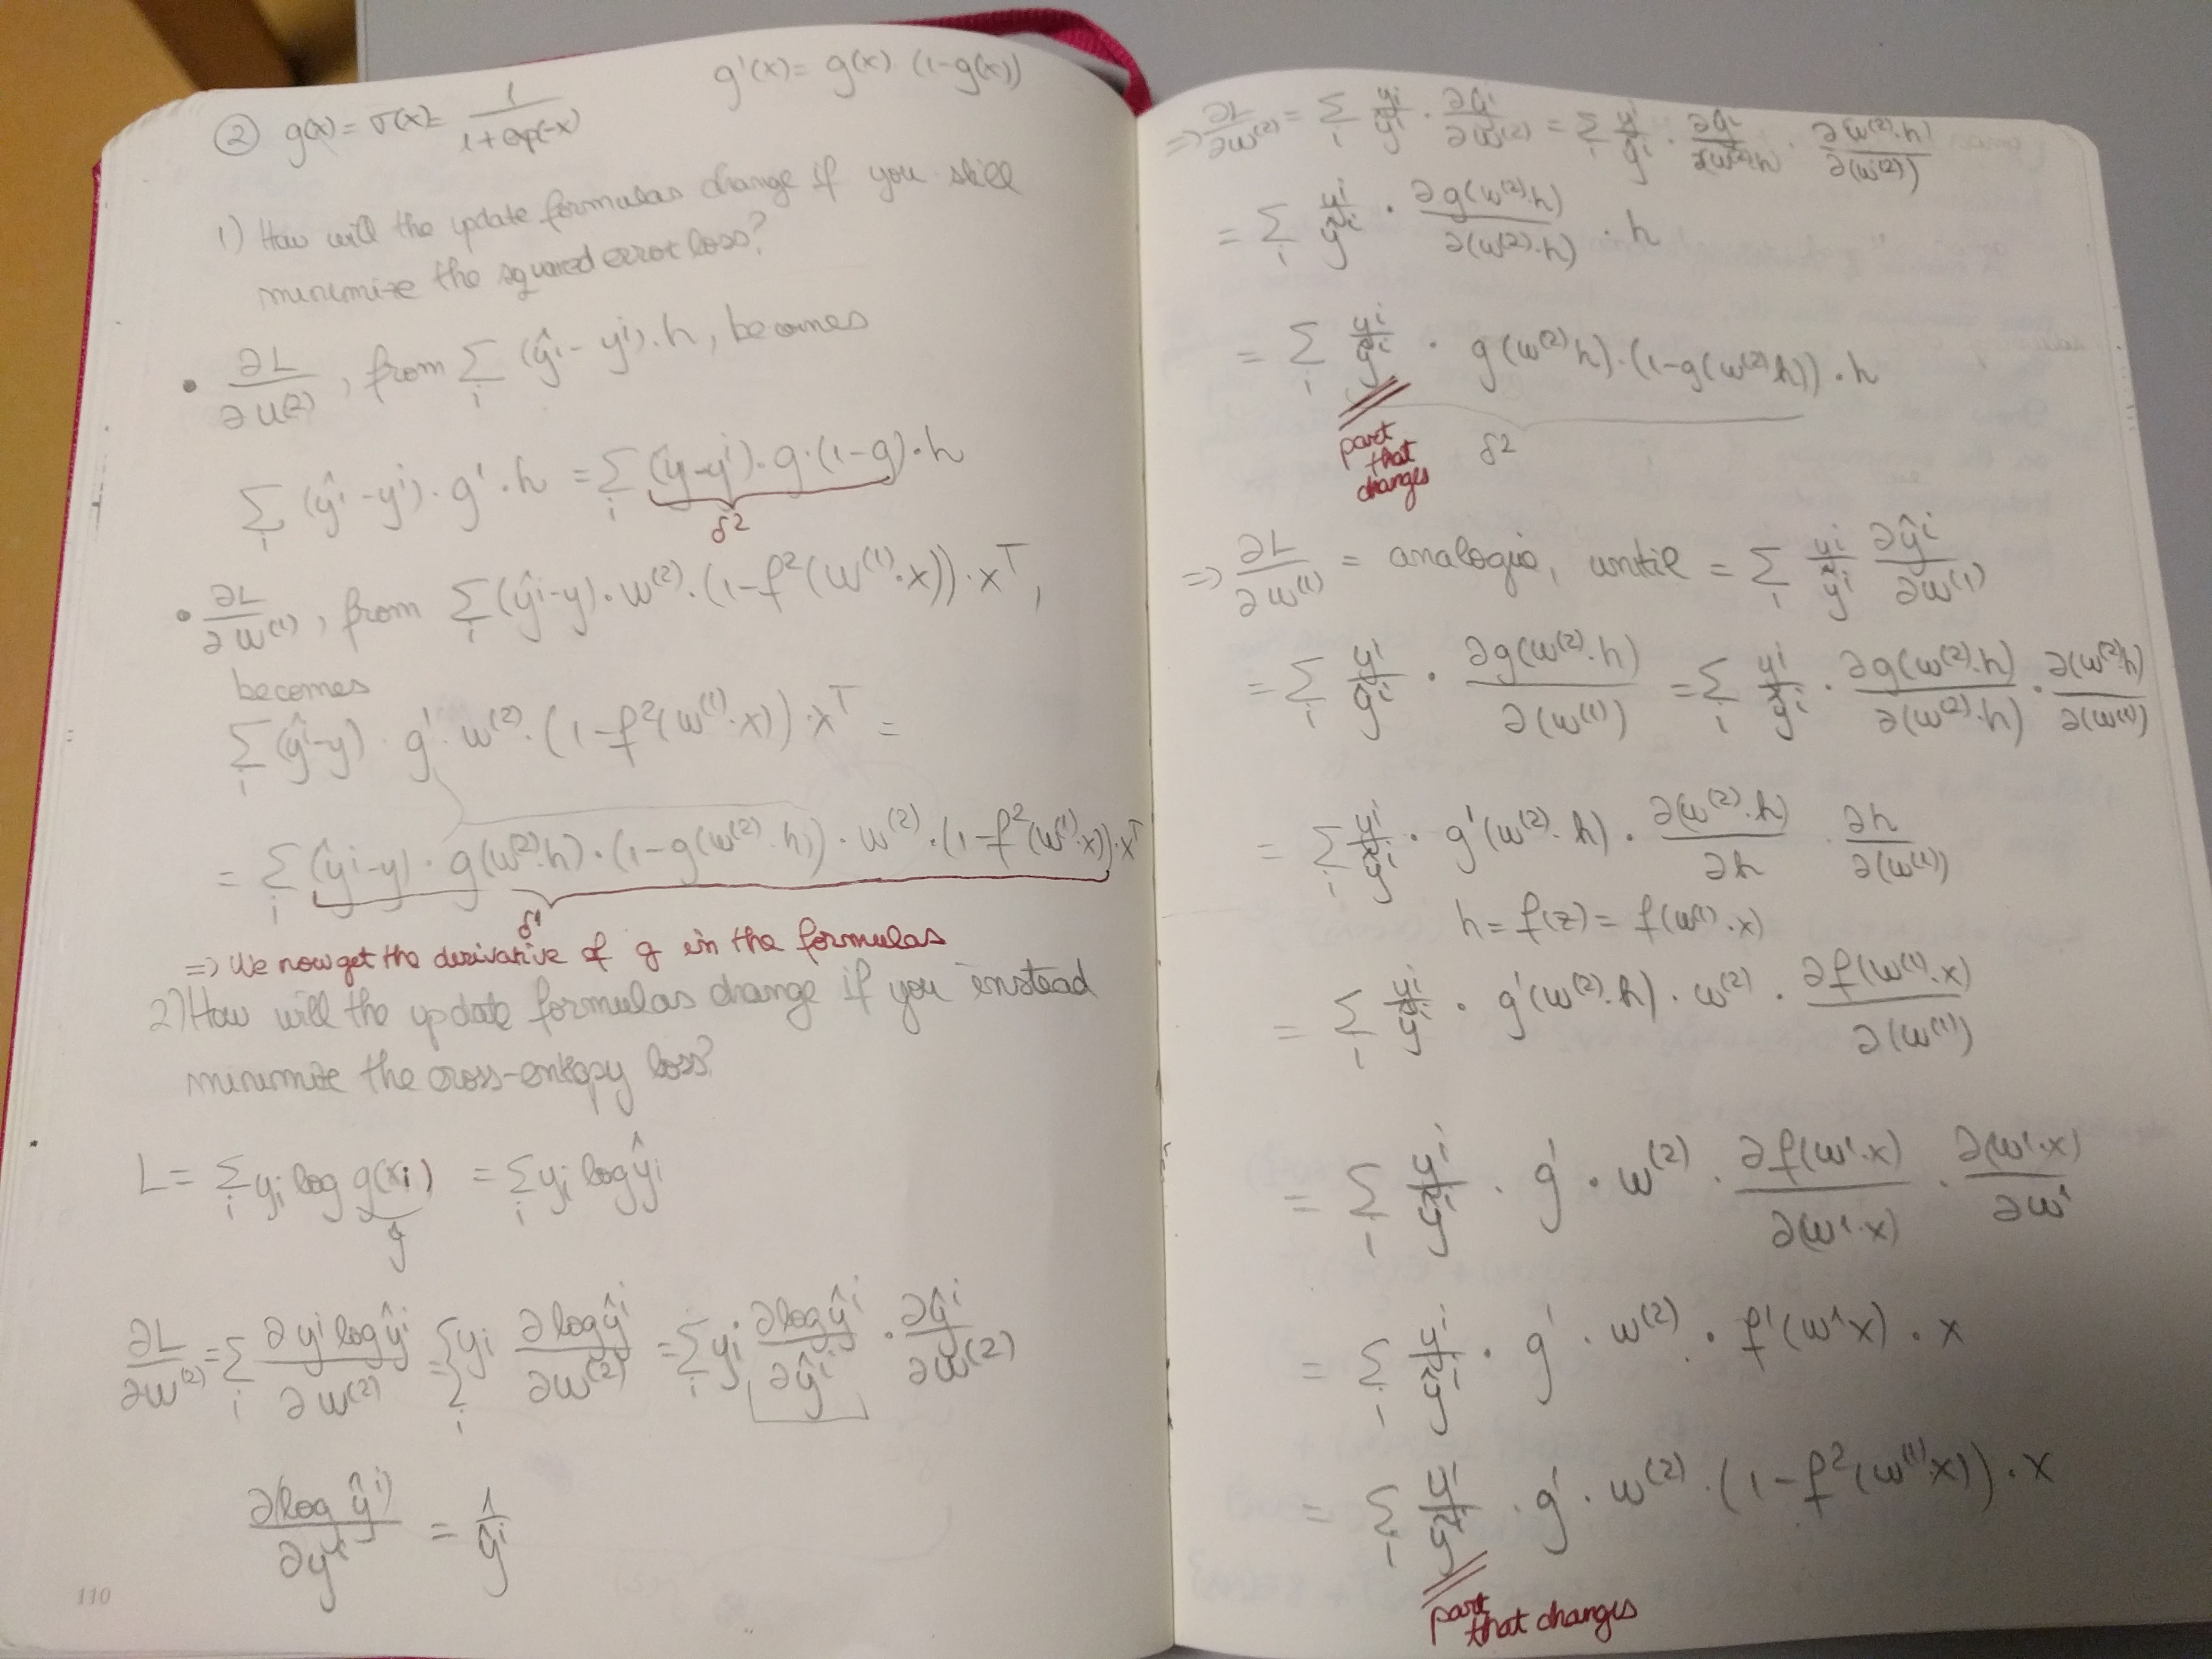 ② g(x) = σ(x) = 1/(1+exp(-x))    g'(x) = g(x) · (1-g(x))
1) How will the update formulas change if you still
minimize the squared error loss?
• ∂L/∂w(2), from Σ_i (ŷ^i - y^i)·h, becomes
Σ_i (ŷ^i - y^i)·g'·h = Σ_i (y - y^i)·g·(1-g)·h
δ2
• ∂L/∂w^(1), from Σ_i (ŷ^i - y)·w^(2)·(1-f²(w^(1)·x))·x^T,
becomes
Σ_i (ŷ^i - y)·g'·w^(2)·(1-f²(w^(1)·x))·x^T =
= Σ_i (ŷ^i - y)·g(w^(2)·h)·(1-g(w^(2)·h))·w^(2)·(1-f²(w^(1)·x))·x^T
δ1
=> We now get the derivative of g in the formulas
2) How will the update formulas change if you instead
minimize the cross-entropy loss?
L = Σ_i y_i log g(x_i) = Σ_i y_i log ŷ_i
ŷ
∂L/∂w^(2) = Σ_i ∂y^i log ŷ^i/∂w^(2) = Σ_i y_i ∂log ŷ^i/∂w^(2) = Σ_i y_i · ∂log ŷ^i/∂ŷ^i · ∂ŷ^i/∂w^(2)
∂(log ŷ^i)/∂y^i = 1/ŷ^i
110
=> ∂L/∂w^(2) = Σ_i y^i/ŷ^i · ∂ŷ^i/∂w^(2) = Σ_i y^i/ŷ^i · ∂ŷ^i/∂w^(2)h · ∂w^(2)·h/∂(w^(2))
= Σ_i y^i/ŷ^i · ∂g(w^(2)·h)/∂(w^(2)·h) · h
= Σ_i y^i/ŷ^i · g(w^(2)h)·(1-g(w^(2)h))·h
part
that
changes
δ2
=> ∂L/∂w^(1) = analogic, until = Σ_i y^i/ŷ^i ∂ŷ^i/∂w^(1)
= Σ_i y^i/ŷ^i · ∂g(w^(2)·h)/∂(w^(1)) = Σ_i y^i/ŷ^i · ∂g(w^(2)·h)/∂(w^(2)·h) · ∂(w^(2)h)/∂(w^(1))
= Σ_i y^i/ŷ^i · g'(w^(2)·h) · ∂(w^(2)·h)/∂h · ∂h/∂(w^(1))
h = f(z) = f(w^(1)·x)
= Σ_i y^i/ŷ^i · g'(w^(2)·h) · w^(2) · ∂f(w^(1)·x)/∂(w^(1))
= Σ_i y^i/ŷ^i · g' · w^(2) · ∂f(w^1·x)/∂(w^1·x) · ∂(w^1·x)/∂w^1
= Σ_i y^i/ŷ^i · g' · w^(2) · f'(w^1x) · x
= Σ_i y^i/ŷ^i · g' · w^(2) · (1-f²(w^(1)x)) · x
part
that changes